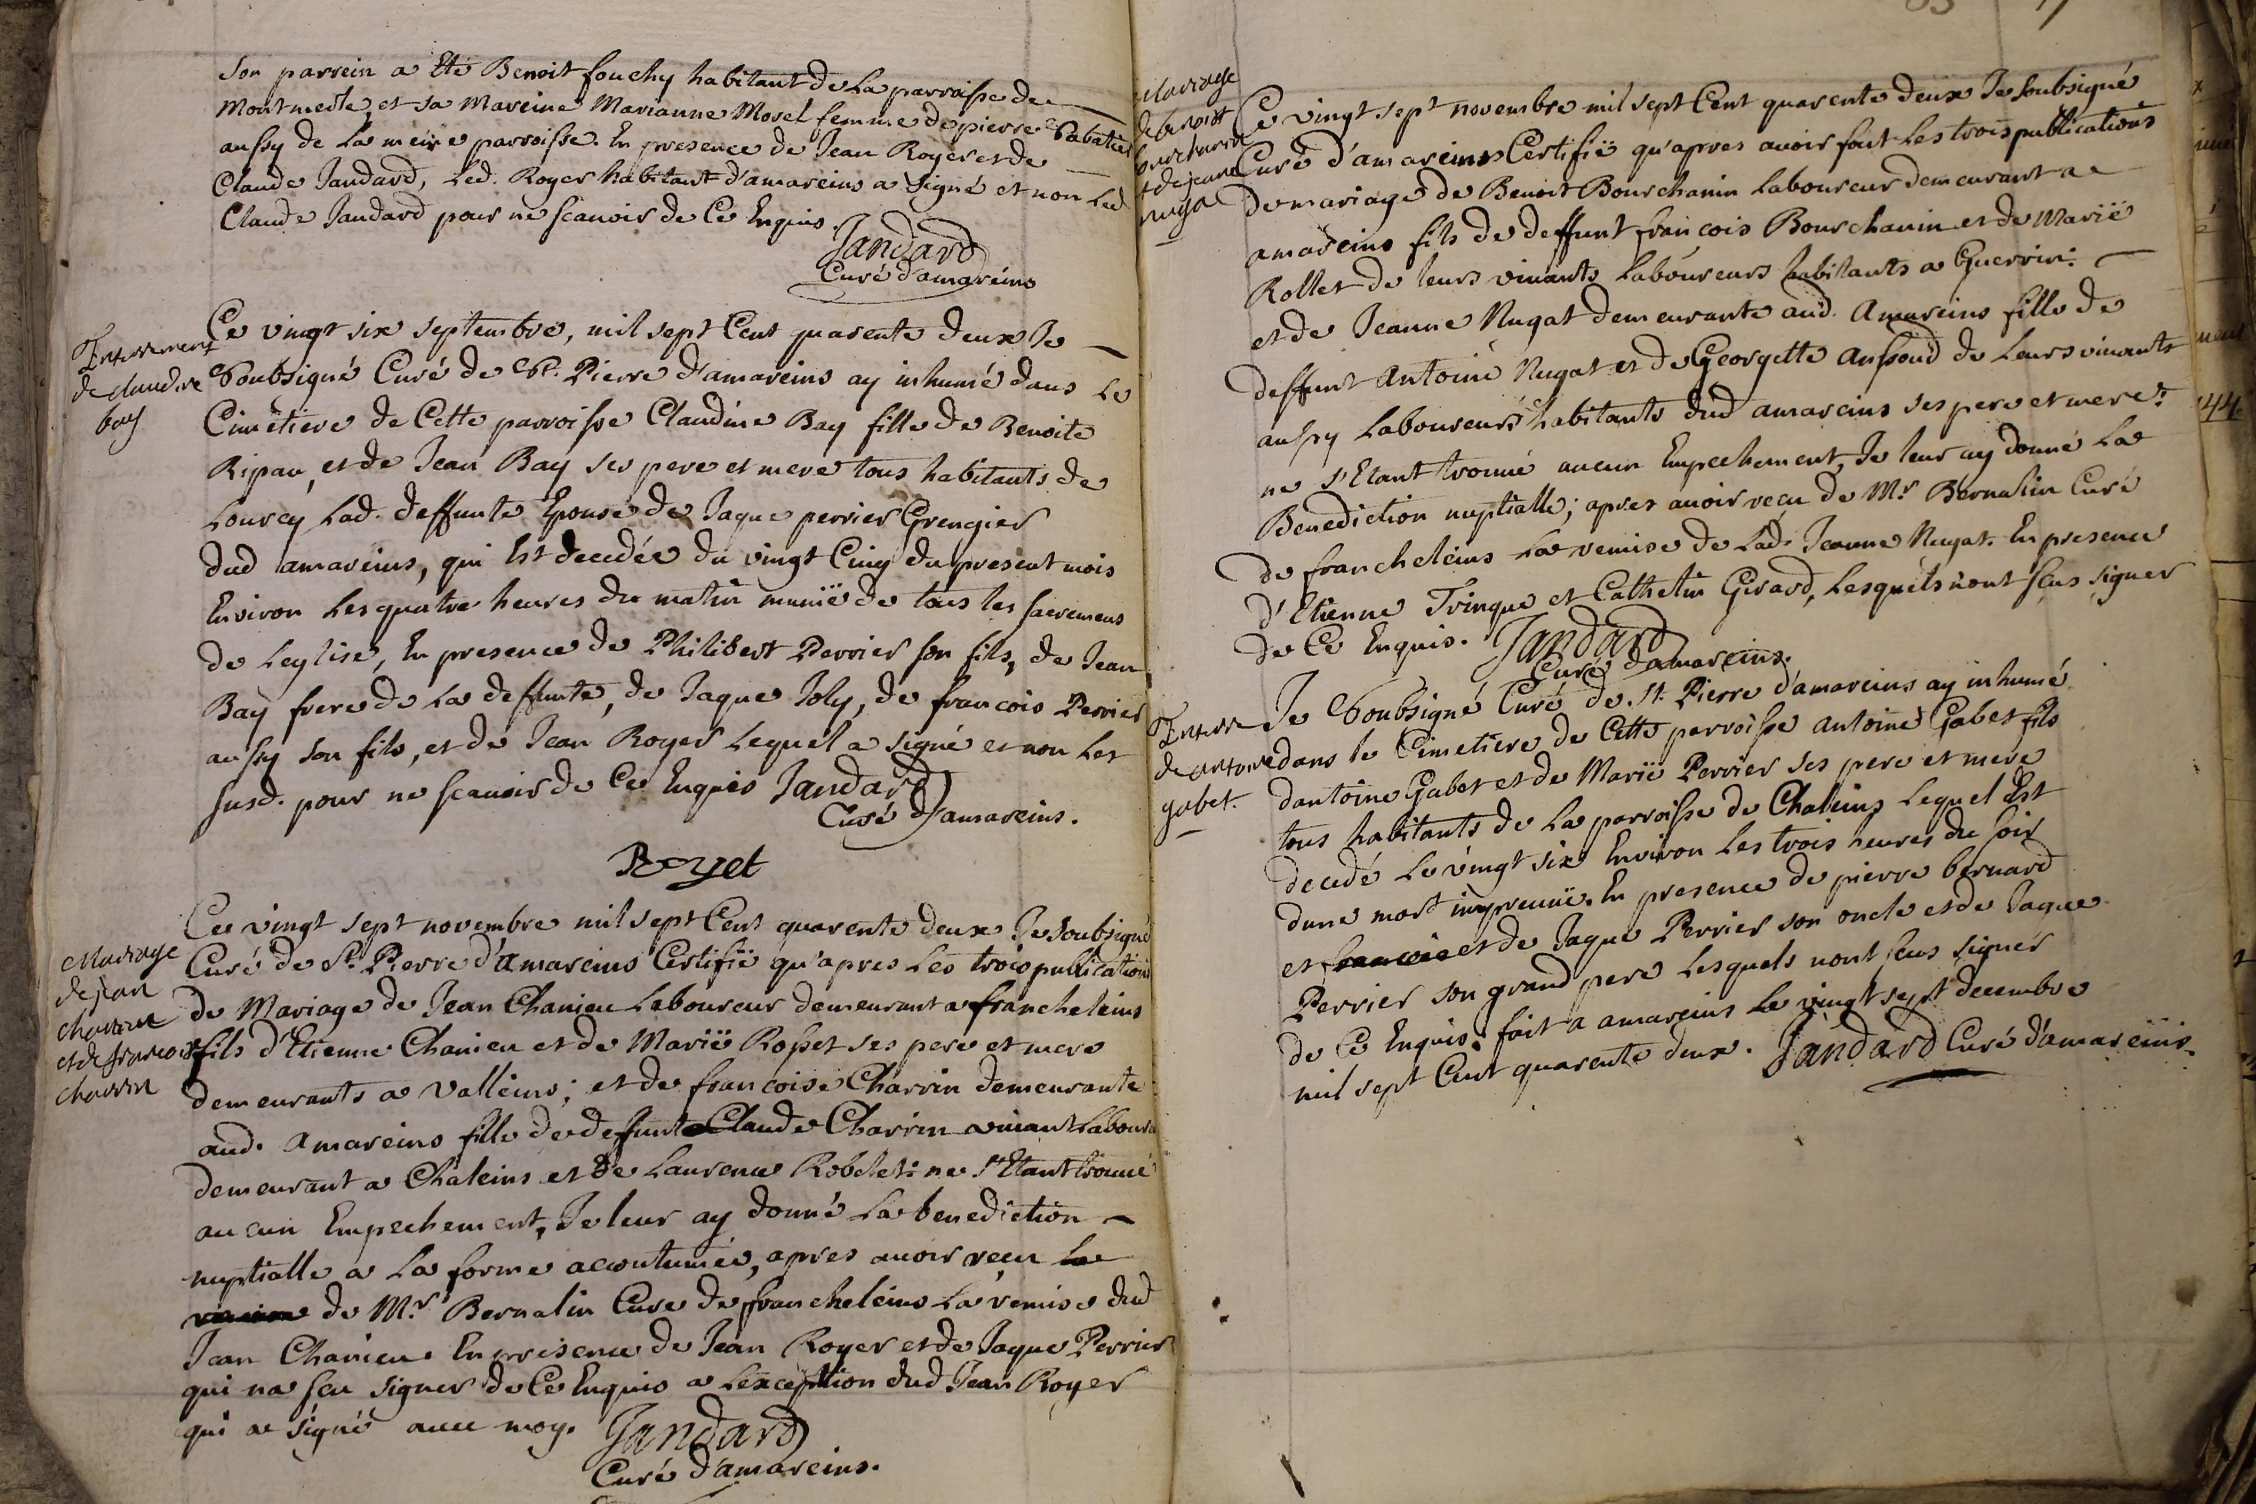 son parrein a Eté Benoit fouchy habitant de La parroisse de
Montmerle, et sa Mareine Marianne Morel femme de pierre Sabatier
aussy de La meme parroisse. En presence de Jean Royer et de
Claude Jandard, Led. Royer habitant d'amareins a signé et non Led
Claude Jandard pour ne scauoir de Ce Enquis.
Jandard
Curé d'amareins
Enterrement
de claudine
bay
Ce vingt six septembre, mil sept Cent quarente deux Je
Soubsigné Curé de St. Pierre d'amareins ay inhumé dans Le
Cimëtiere de Cette parroisse Claudine Bay fille de Benoite
Ripau, et de Jean Bay ses pere et mere tous habitants de
Lourcy, Lad. deffunte Epouse de Jaque perrier Grengier
dud amareins, qui Est decedée du vingt Cinq du present mois
Environ Les quatre heures du matin munië de tous les sacremens
de Leglise, En presence de Philibert Perrier son fils, de Jean
Bay frere de La deffunte, de Jaque Joly, de francois Perrier
aussy son fils, et de Jean Royer Lequel a signé et non Les
susd. pour ne scauoir de Ce Enquis Jandard
Curé d'amareins.
Royet
Mariage
de jean
chanieu
et de francoise
charrin
Ce vingt sept novembre mil sept Cent quarente deux Je soubsigné
Curé de St. Pierre d'amareins Certifië qu'apres Les trois publications
de Mariage de Jean Chanieu Laboureur demeurant a francheleins
fils d'Etienne Chanieu et de Marië Rosset ses pere et mere
demeurants a Valleins; et de francoise Charrin demeurante
aud. amareins fille de deffunt Claude Charrin viuant Laboureur
demeurant a Chaleins et de Laurence Robelet: ne s'Etant trouué
aucun Empechement, Je leur ay donné La benediction
nuptialle a La forme accoutumée, apres auoir recu La
de Mr. Bernalin Cure de francheleins La remise dud
Jean Chanieu. En presence de Jean Royer et de Jaque Perrier
qui na scu signer de Ce Enquis a Lexception dud Jean Royer
qui a signé auec moy. Jandard
Curé d'amareins.
Mariage
de benoist
bourchanin
et de jeane
nuga
Ce vingt sept novembre mil sept Cent quarente deux Je soubsigné
Curé d'amareins Certifië qu'apres auoir fait Les trois publications
de mariage de Benoit Bourchanin Laboureur demeurant a
amareins fils de deffunt francois Bourchanin et de Marië
Rollet de leurs viuants Laboureurs habitants a Guerrin:
et de Jeanne Nugat demeurante aud. Amareins fille de
deffunt Antoine Nugat et de Georgette Aussoud de Leurs viuants
aussy Laboureurs habitants dud amareins ses pere et mere:
ne s'Etant trouué aucun Empechement, Je leur ay donné La
Benediction nuptialle; apres auoir recu de Mr Bernalin Curé
de francheleins La remise de Lad. Jeanne Nugat. En presence
d'Etienne Trinque et Cathelin Girard, Lesquels n'ont scus signer
de Ce Enquis. Jandard
Curé d'amareins.
Enterre
de antoine
gabet.
Je Soubsigné Curé de St. Pierre d'amareins ay inhumé
dans le Cimetiere de Cette parroisse antoine Gabet fils
dantoine Gabet et de Marië Perrier ses pere et mere
tous habitants de La parroisse de Chaleins Lequel Est
decedé Le vingt six Environ Les trois heures du soir
dune mort impreuuë. En presence de pierre bernard
et francois et de Jaque Perrier son oncle et de Jaque
Perrier son grand pere Lesquels nont scus signer
de Ce Enquis. fait a amareins Le vingt sept decembre
mil sept Cent quarente deux. Jandard Curé d'amareins.